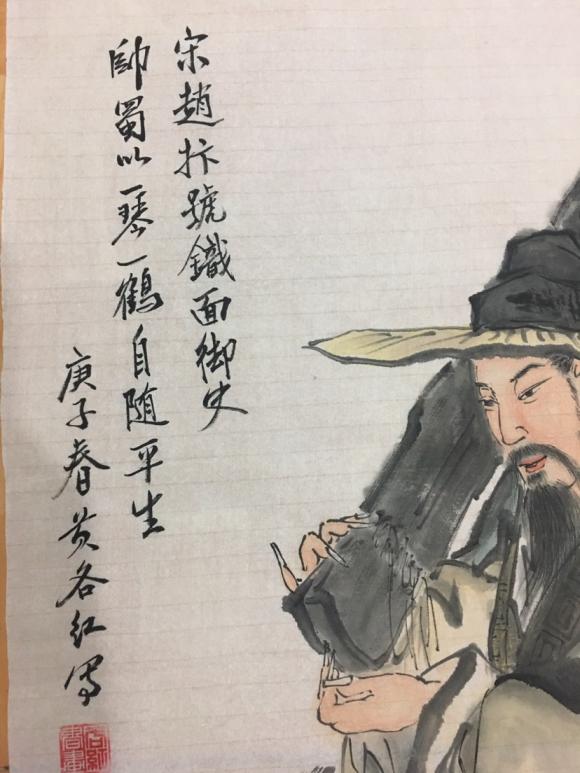 宋趙抃號鐵面御史
帥蜀以一琴一鶴自随平生
庚子春黄各红写